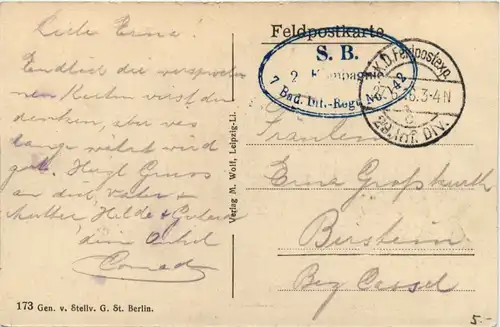 Feldpostkarte
S. B.
2. Kompagnie
7 Bad. Inf.-Regt. No. 142
K.D. Feldpostexp.
3-4N
29. Inf. Div.
Liebe Erna!
Endlich die versproche
nen Karten wirst du
denken, aber was
lange währt wird
gut. Herzl Gruss
an dich, Vater &
Mutter Hilde &
dein Onkel
Conrad
Fräulein
Erna Großkurth
Birstein
Bez Cassel
Verlag M. Wolf, Leipzig-Li.
173 Gen. v. Stellv. G. St. Berlin.
5.-